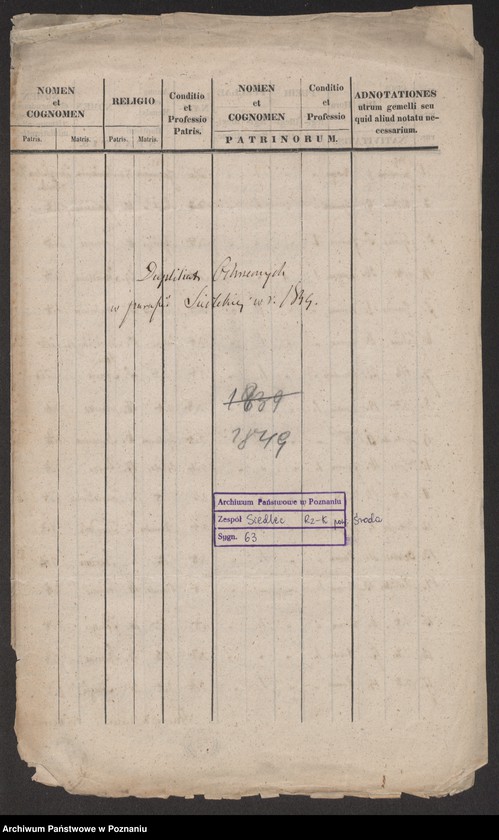 NOMEN
et
COGNOMEN
RELIGIO
Conditio
et
Professio
Patris.
NOMEN
et
COGNOMEN
Conditio
et
Professio
ADNOTATIONES
utrum gemelli seu
quid aliud notatu ne-
cessarium.
Patris.
Matris.
Patris.
Matris.
PATRINORUM.
Duplikat Ochrzconych
w parafii Siedleckiej w r. 1849.
1839
1849
Archiwum Państwowe w Poznaniu
Zespół Siedlec Rz-K pow. Środa
Sygn. 63
Archiwum Państwowe w Poznaniu